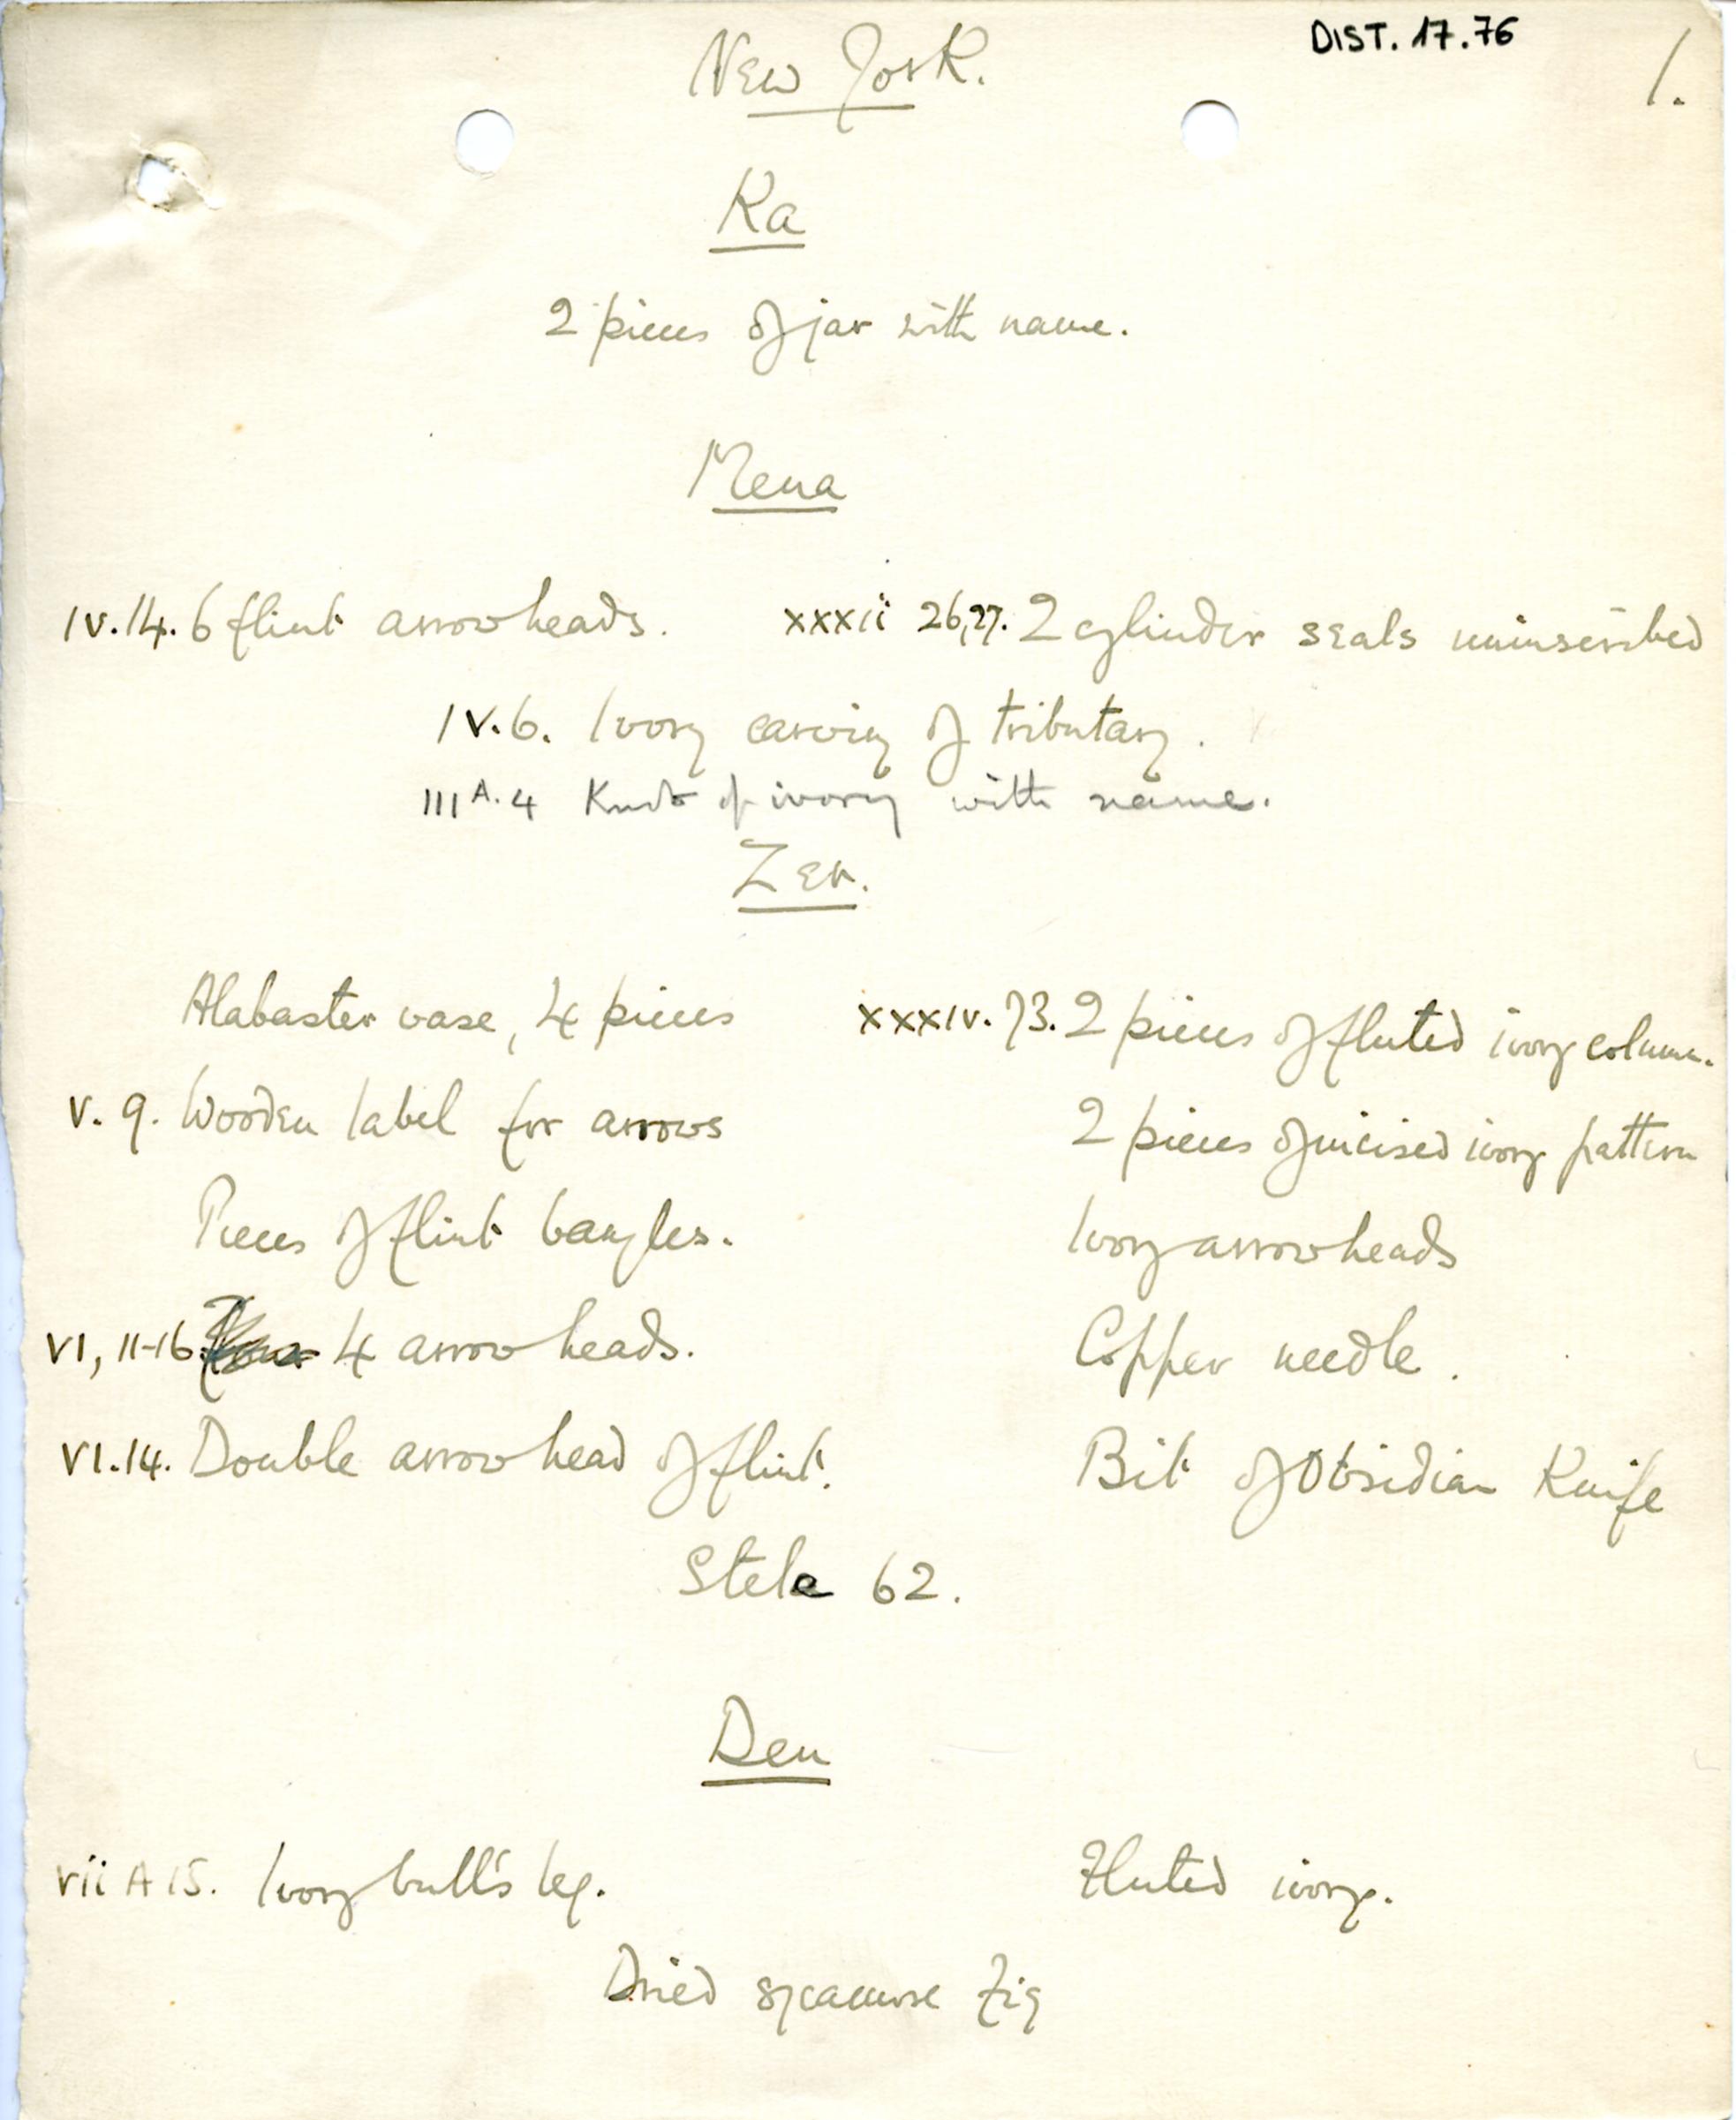 DIST. 17.76
New York. 1.
Ka
2 pieces of jar with name.
Mena
IV.14. 6 flint arrowheads. xxxii 26,27. 2 cylinder seals uninscribed
IV.6. Ivory carving of tributary.
III A.4 Knot of ivory with name.
Zer.
Alabaster vase, 4 pieces xxxiv. 73. 2 pieces of fluted ivory column.
V. 9. Wooden label for arrows 2 pieces of incised ivory pattern
Pieces of flint bangles. Ivory arrowheads
VI, 11-16. 4 arrowheads. Copper needle.
VI.14. Double arrowhead of flint. Bit of Obsidian Knife
Stele 62.
Den
vii A 15. Ivory bull's leg. Fluted ivory.
Dried sycamore fig